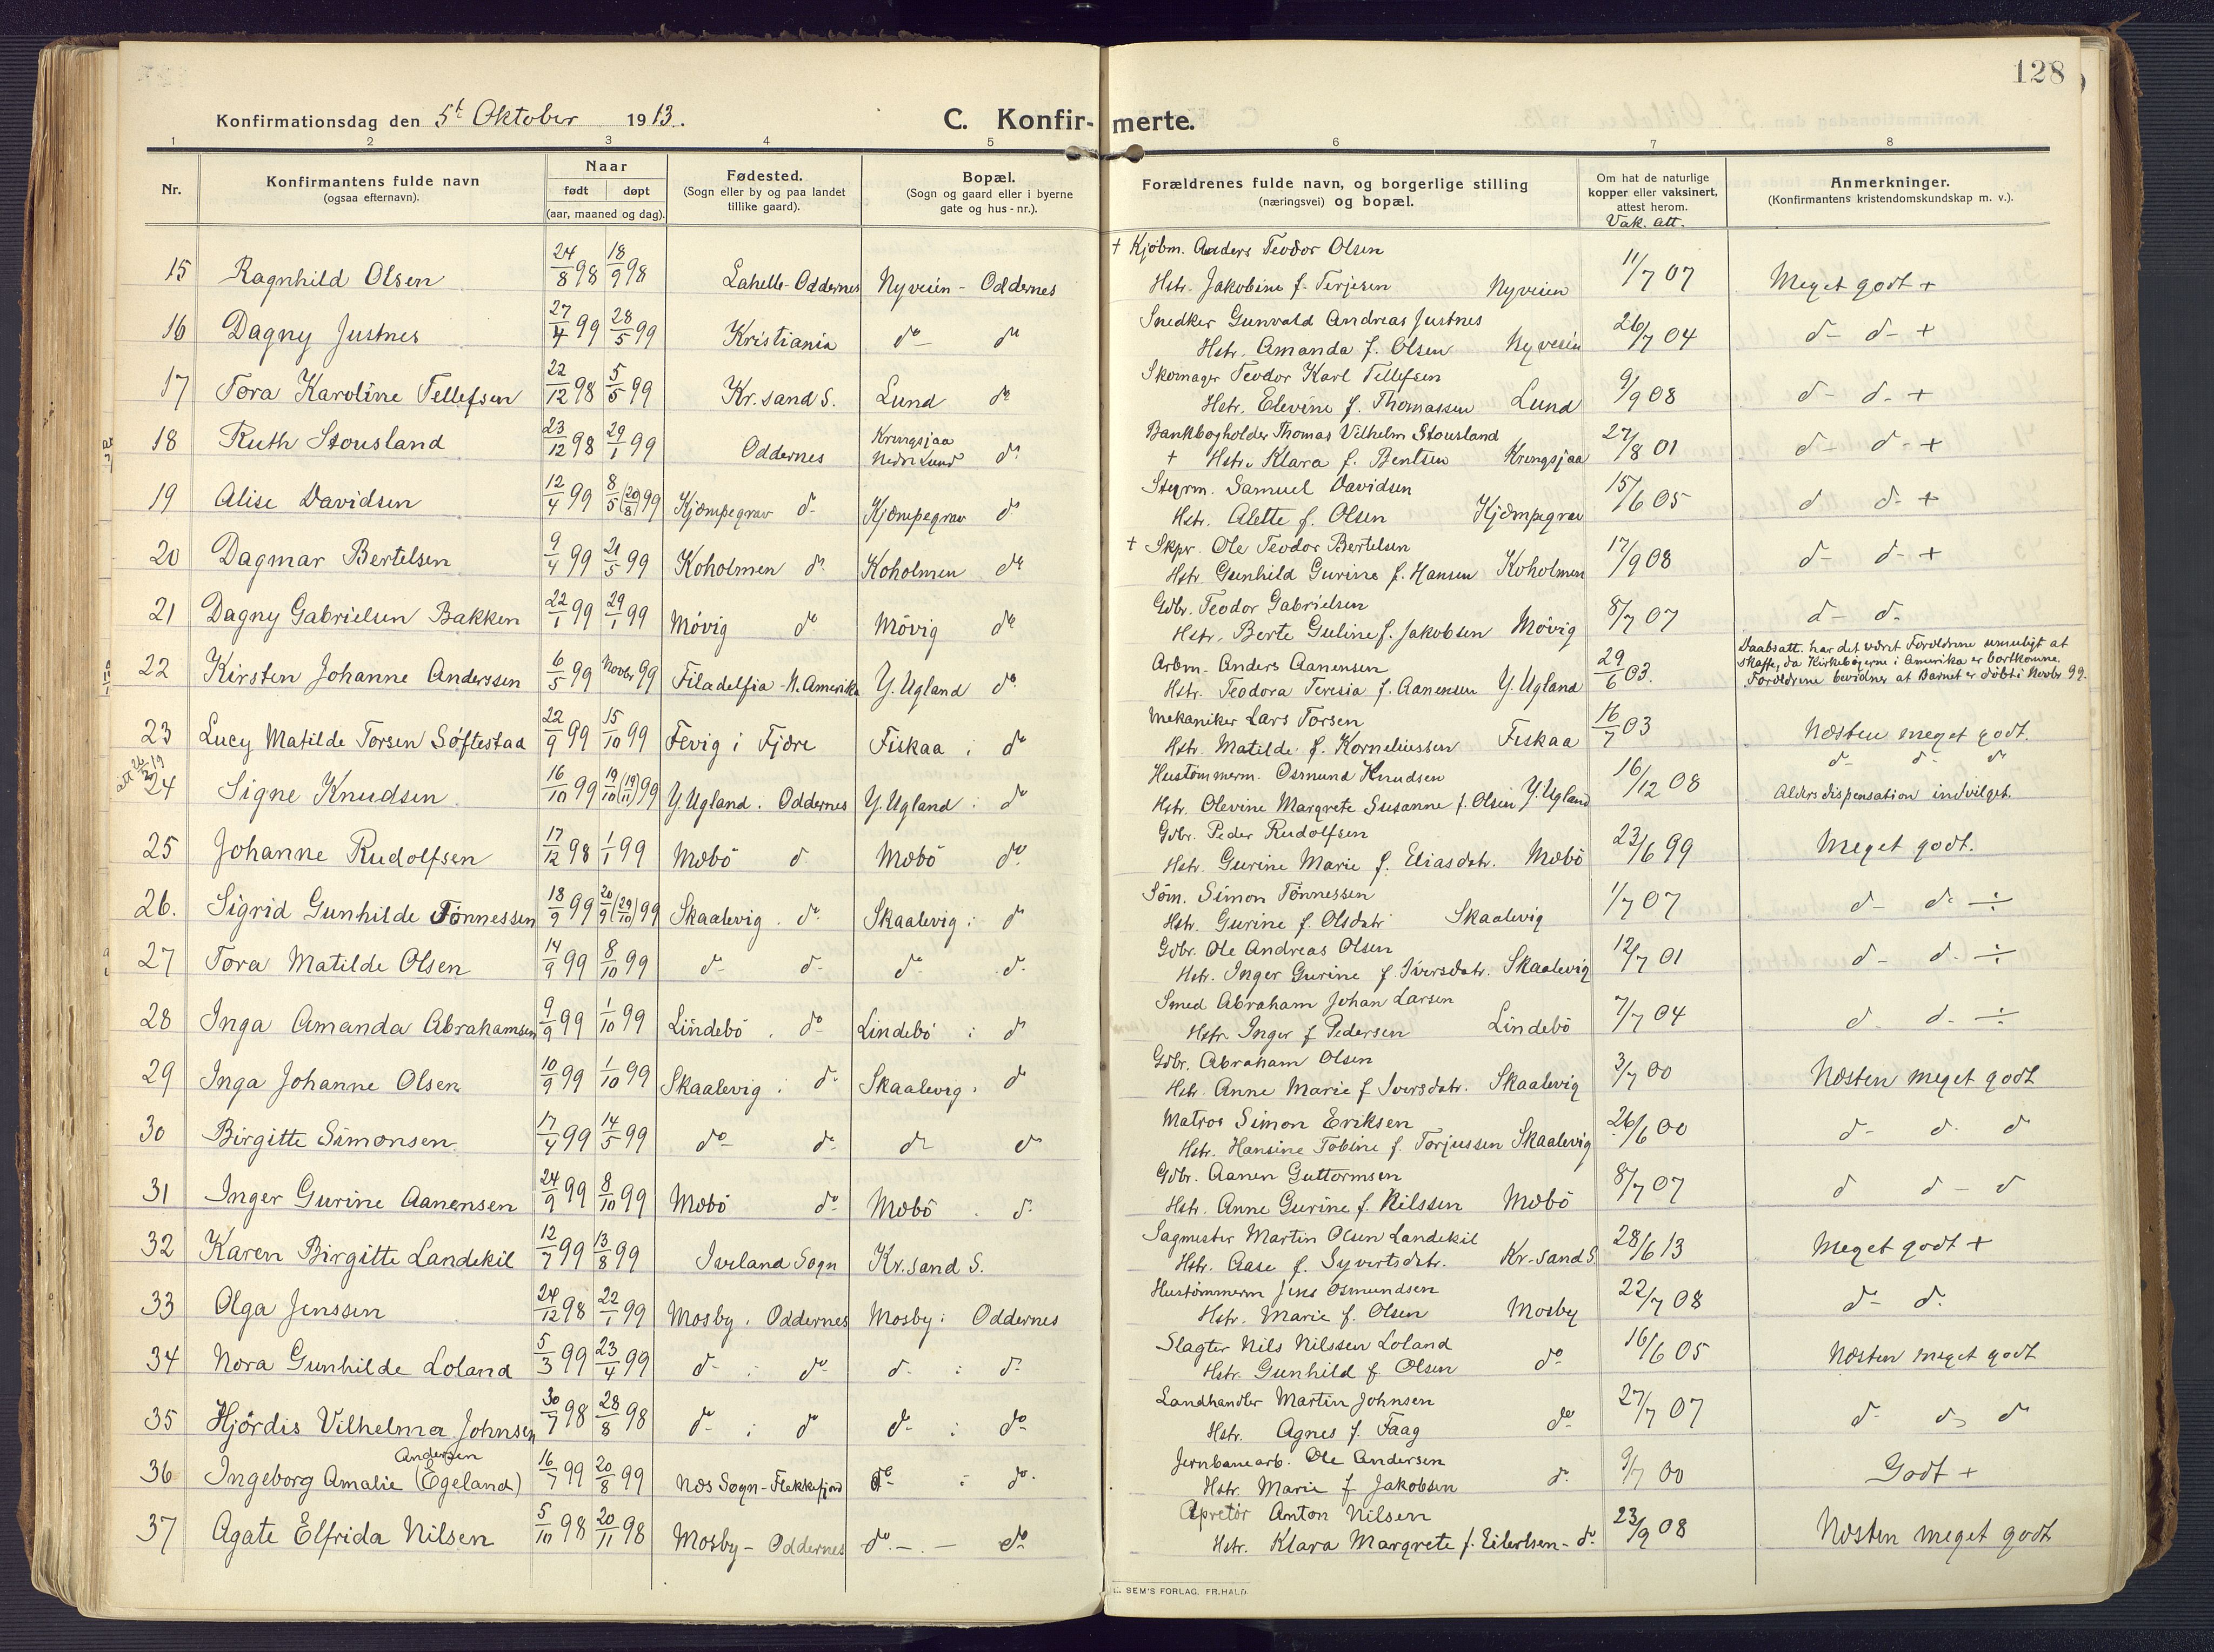 128
Konfirmationsdag den 5t Oktober 1913.
C. Konfir-merte.
1 2 3 4 5 6 7 8
Nr.
Konfirmantens fulde navn
(ogsaa efternavn).
Naar
født døpt
(aar, maaned og dag).
Fødested.
(Sogn eller by og paa landet
tillike gaard).
Bopæl.
(Sogn og gaard eller i byerne
gate og hus-nr.).
Forældrenes fulde navn, og borgerlige stilling
(næringsvei) og bopæl.
Om hat de naturlige
kopper eller vaksinert,
attest herom.
Vak. att.
Anmerkninger.
(Konfirmantens kristendomskundskap m. v.).
† Kjøbm. Anders Teodor Olsen
15 Ragnhild Olsen 24/8 98 18/9 98 Lahelle-Oddernes Nyveien - Oddernes Hstr. Jakobine f. Terjesen Nyveien 11/7 07 Meget godt +
Snedker Gunvald Andreas Justnes
16 Dagny Justnes 27/4 99 28/5 99 Kristiania do do Hstr. Amanda f. Olsen Nyveien 26/7 04 d- d- +
Skomager Teodor Karl Tellefsen
17 Tora Karoline Tellefsen 22/12 98 5/5 99 Kr.sand S. Lund do Hstr. Elevine f. Thomassen Lund 9/9 08 d- d- +
Bankbogholder Thomas Vilhelm Stousland
18 Ruth Stousland 23/12 98 29/1 99 Oddernes Kringsjaa Nedre Lund do † Hstr. Klara f. Bentsen Kringsjaa 27/8 01 d- d- +
Styrm. Samuel Davidsen
19 Alise Davidsen 12/4 99 8/5 (20/8) 99 Kjæmpegrav d- Kjæmpegrav do Hstr. Alette f. Olsen Kjæmpegrav 15/6 05 d d- +
† Skpr. Ole Teodor Bertelsen
20 Dagmar Bertelsen 9/4 99 21/5 99 Koholmen do Koholmen do Hstr Gunhild Gurine f. Hansen Koholmen 17/9 08 d- d- +
Gdbr. Teodor Gabrielsen
21 Dagny Gabrielsen Bakken 22/1 99 29/1 99 Møvig do Møvig do Hstr. Berte Guline f. Jakobsen Møvig 8/7 07 d- d-
Arbm. Anders Aanensen
22 Kirsten Johanne Anderssen 6/5 99 Novbr 99 Filadelfia - N. Amerika Y. Ugland do Hstr. Teodora Teresia f. Aanensen Y. Ugland 29/6 03.
Daabsatt. har det været Forældrene umuligt at
skaffe, da Kirkebøgerne i Amerika er bortkomne.
Forældrene bevidner at Barnet er døbt i Novbr 99.
Mekaniker Lars Torsen
23 Lucy Matilde Torsen Søftestad 22/9 99 15/10 99 Fevig i Fjære Fiskaa : do Hstr. Matilde f. Korneliussen Fiskaa 16/7 03 Næsten meget godt.
Hustømmerm. Osmund Knudsen d- d- do
24 Signe Knudsen 16/10 99 19/10 (19/11) 99 Y. Ugland. Oddernes Y. Ugland : do Hstr. Olevine Margrete Susanne f. Olsen Y. Ugland 16/12 08 Aldersdispensation indvilget.
Gdbr. Peder Rudolfsen
25 Johanne Rudolfsen 17/12 98 1/1 99 Mæbø d- Mæbø do Hstr. Gurine Marie f. Eliasdatr. Mæbø 23/6 99 Meget godt.
Søm. Simon Tønnessen
26. Sigrid Gunhilde Tønnessen 18/9 99 20/9 (29/10) 99 Skaalevig . do Skaalevig : do Hstr. Gurine f. Olsdatr Skaalevig 1/7 07 d- do ÷
Gdbr. Ole Andreas Olsen
27 Tora Matilde Olsen 14/9 99 8/10 99 do d- do d- Hstr. Inger Gurine f. Iversdatr. Skaalevig 12/7 01 d- d- ÷
Smed Abraham Johan Larsen
28 Inga Amanda Abrahamsen 9/9 99 1/10 99 Lindebø . do Lindebø : do Hstr. Inger f Pedersen Lindebø 7/7 04 d- d- ÷
Gdbr. Abraham Olsen
29 Inga Johanne Olsen 10/9 99 1/10 99 Skaalevig : do Skaalevig : do Hstr. Anne Marie f Iversdatr. Skaalevig 3/7 00 Næsten meget godt
Matros Simon Eriksen
30 Birgitte Simonsen 17/4 99 14/5 99 do do do do Hstr. Hansine Tobine f. Torjussen Skaalevig 26/6 00 d- d- do
Gdbr. Aanen Guttormsen
31 Inger Gurine Aanensen 24/9 99 8/10 99 Mæbø do Mæbø . d- Hstr. Anne Gurine f. Nilssen Mæbø 8/7 07 d d- d
Sagmester Martin Olsen Landekil
32 Karen Birgitte Landekil 12/7 99 13/8 99 Iveland Sogn Kr.sand S. Hstr. Aase f. Syvertsdatr. Kr.sand S. 28/6 13 Meget godt +
Hustømmerm Jens Osmundsen
33 Olga Jenssen 24/12 98 22/1 99 Mosby . Oddernes Mosby : Oddernes Hstr. Marie f. Olsen Mosby 22/7 08 d- d-
Slagter Nils Nilssen Loland
34 Nora Gunhilde Loland 5/3 99 23/4 99 d- : do d- : d- Hstr. Gunhild f. Olsen do 16/6 05 Næsten meget godt
Landhandler Martin Johnsen
35 Hjørdis Vilhelma Johnsen 30/7 98 28/8 98 do : do do : do Hstr. Agnes f. Faag do 27/7 07 d- do do
Andersen Jernbanearb. Ole Andersen
36 Ingeborg Amalie (Egeland) 16/7 99 20/8 99 Næs Sogn - Flekkefjord do : do Hstr. Marie f Jakobsen do 9/7 00 Godt +
Apretør Anton Nilsen
37 Agate Elfrida Nilsen 5/10 98 20/11 98 Mosby - Oddernes do - . - do Hstr. Klara Margrete f. Eilertsen - do 23/9 08 Næsten meget godt
SEM'S FORLAG, FR.HALD.